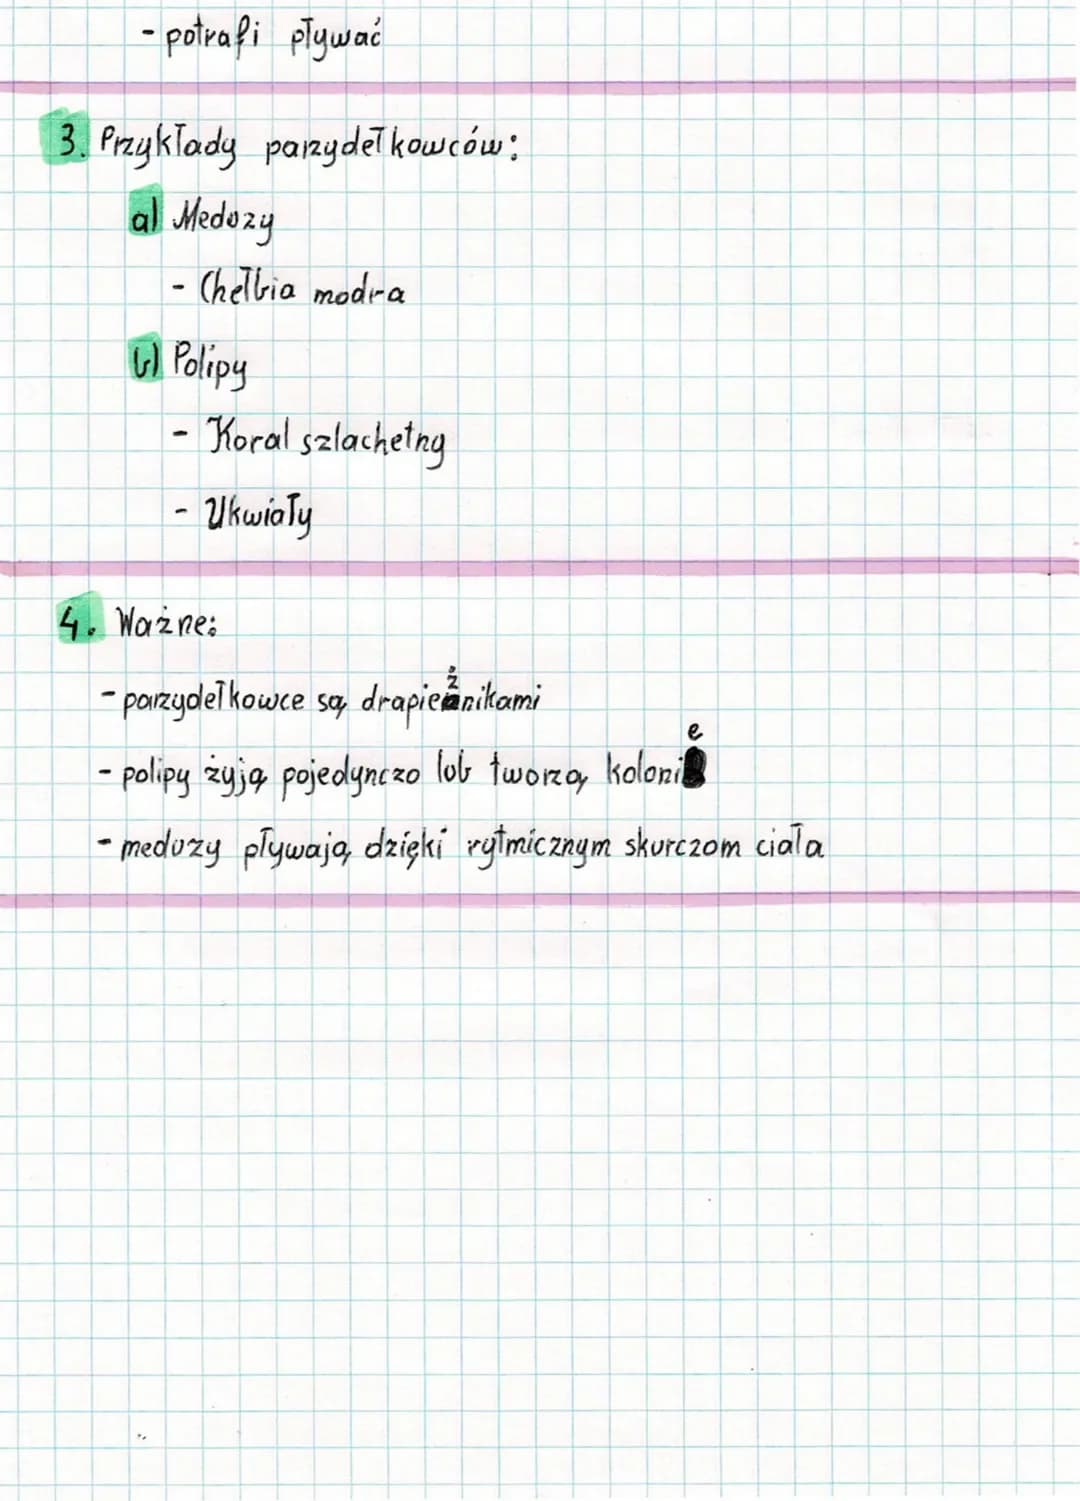 - potrafi pływać
3. Przykłady parzydełkowców:
a) Meduzy
- Chełbia modra
b) Polipy
- Koral szlachetny
- Ukwiały
4. Ważne:
- parzydełkowce są drapieżnikami
- polipy żyją pojedynczo lub tworzą kolonie
- meduzy pływają dzięki rytmicznym skurczom ciała